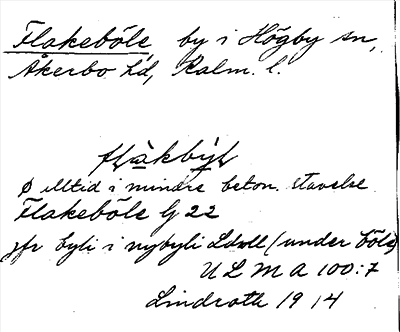 Flakeböle, by i Högby sn,
Åkerbo hd, Kalm. l.
ø alltid i mindre beton. stavelse
Flakeböle G 22
jfr byli i nybyli Ldvll (under böle)
ULMA 100:7
Lindroth 1914